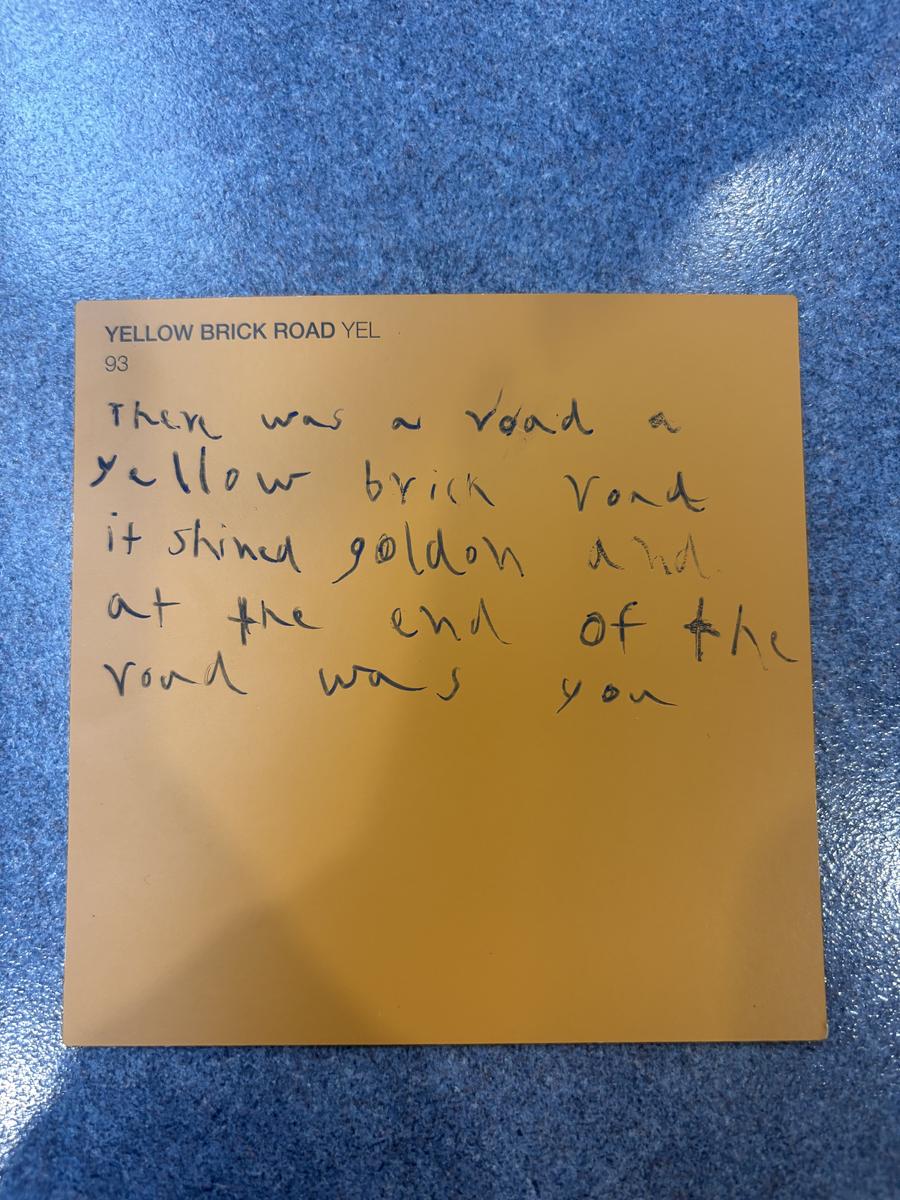 YELLOW BRICK ROAD YEL
93
There was a road a
yellow brick road
it shined goldon and
at the end of the
road was you